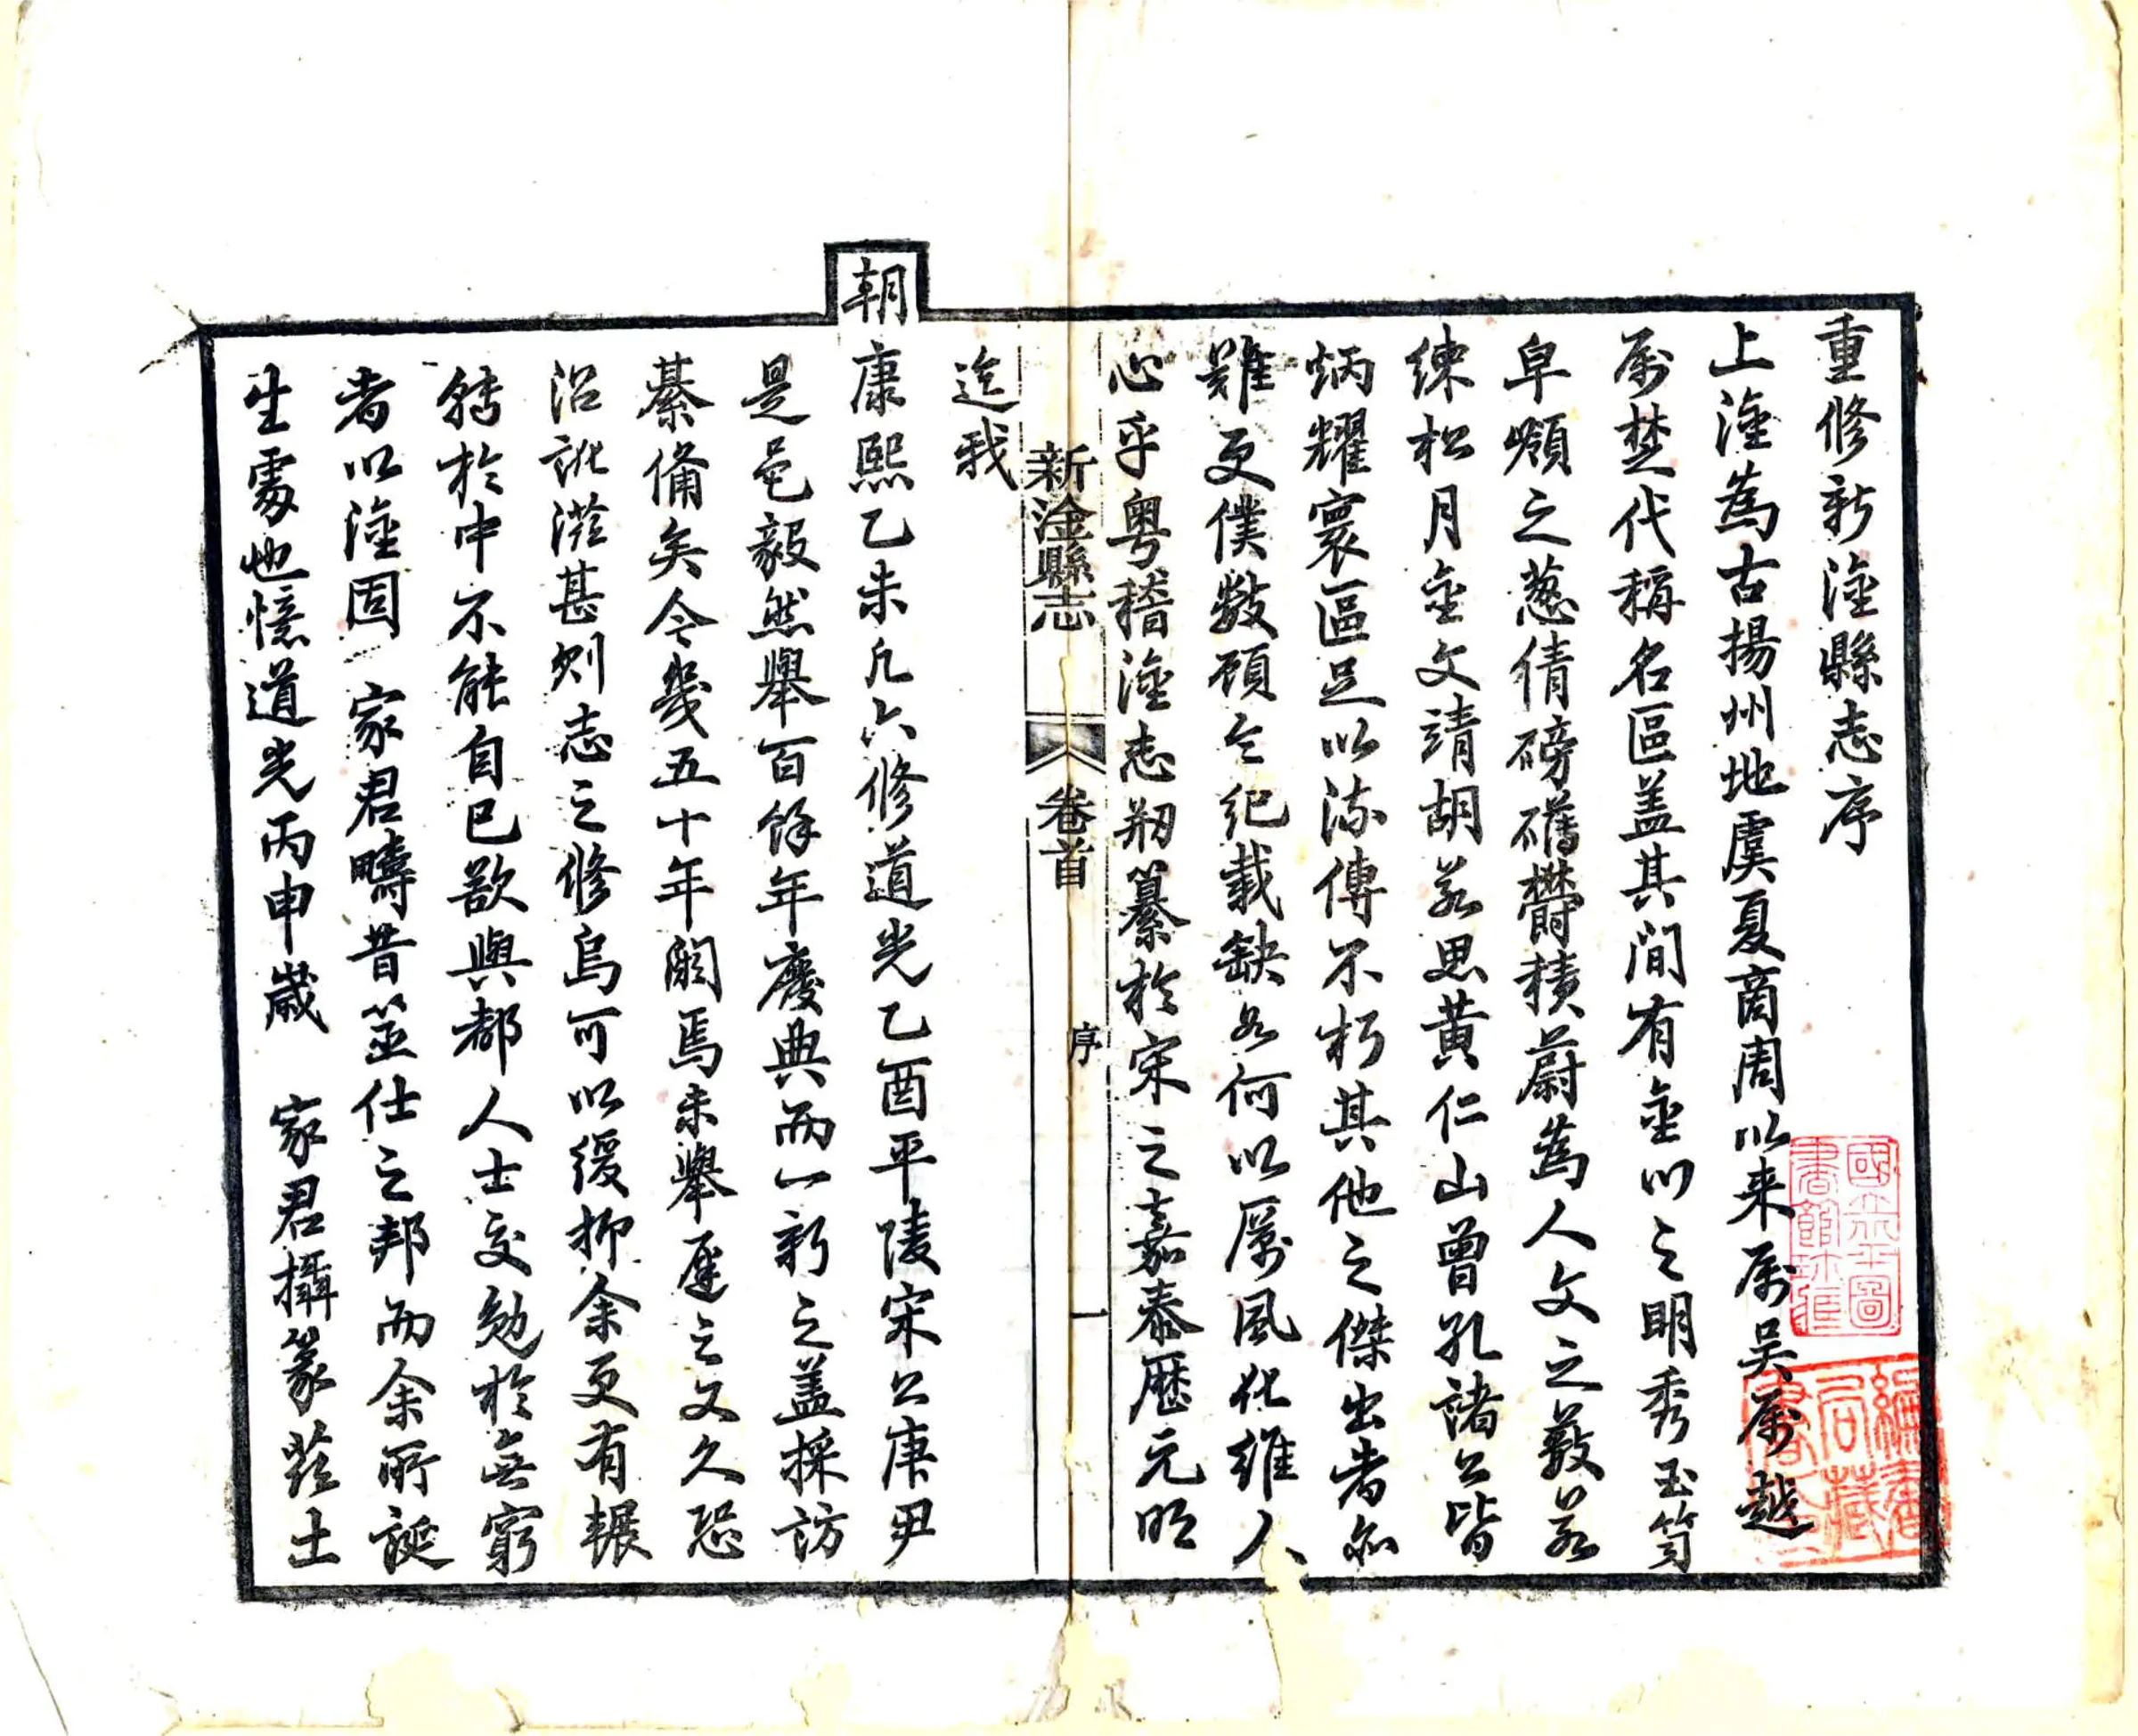 重修新淦縣志序
上淦為古揚州地虞夏商周以来属吳属越
属楚代稱名區盖其間有金川之明秀玉笥
皁嶺之葱倩磅礴欝積蔚為人文之薮若
練松月金文靖胡若思黄仁山曾孔諸公皆
炳耀寰區足以流傳不朽其他之傑出者亦
難更僕數頋令纪載缺如何以厲風化維人
心乎粤稽淦志刱纂於宋之嘉泰歷元明
迄我
朝康熙乙未凡六修道光乙酉平陵宋公庚尹
是邑毅然舉百餘年廢典而一新之盖採訪
綦備矣今幾五十年闕焉未舉遲之又久恐
沿訛滋甚则志之修烏可以缓抑余更有輾
轉於中不能自已欲與都人士交勉於無窮
者以淦固 家君疇昔筮仕之邦而余所誕
生處也憶道光丙申歲 家君攝篆兹土
新淦縣志
卷首
序
一
國立北平圖
書館珎藏